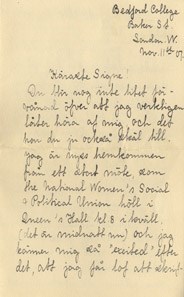 Bedford College
Baker St
London. W.
Nov. 11th 07.
Käraste Signe!
Du blir nog inte litet för-
vånad öfver att jag verkligen
låter höra af mig och det
har du ju också skäl till.
Jag är nyss hemkommen
från ett stort möte, som
the National Women's Social
& Political Union höll i
Queen's Hall kl. 8 i kväll.
(det är midnatt nu) och jag
känner mig så "excited" efter
det, att jag får lof att skrif-